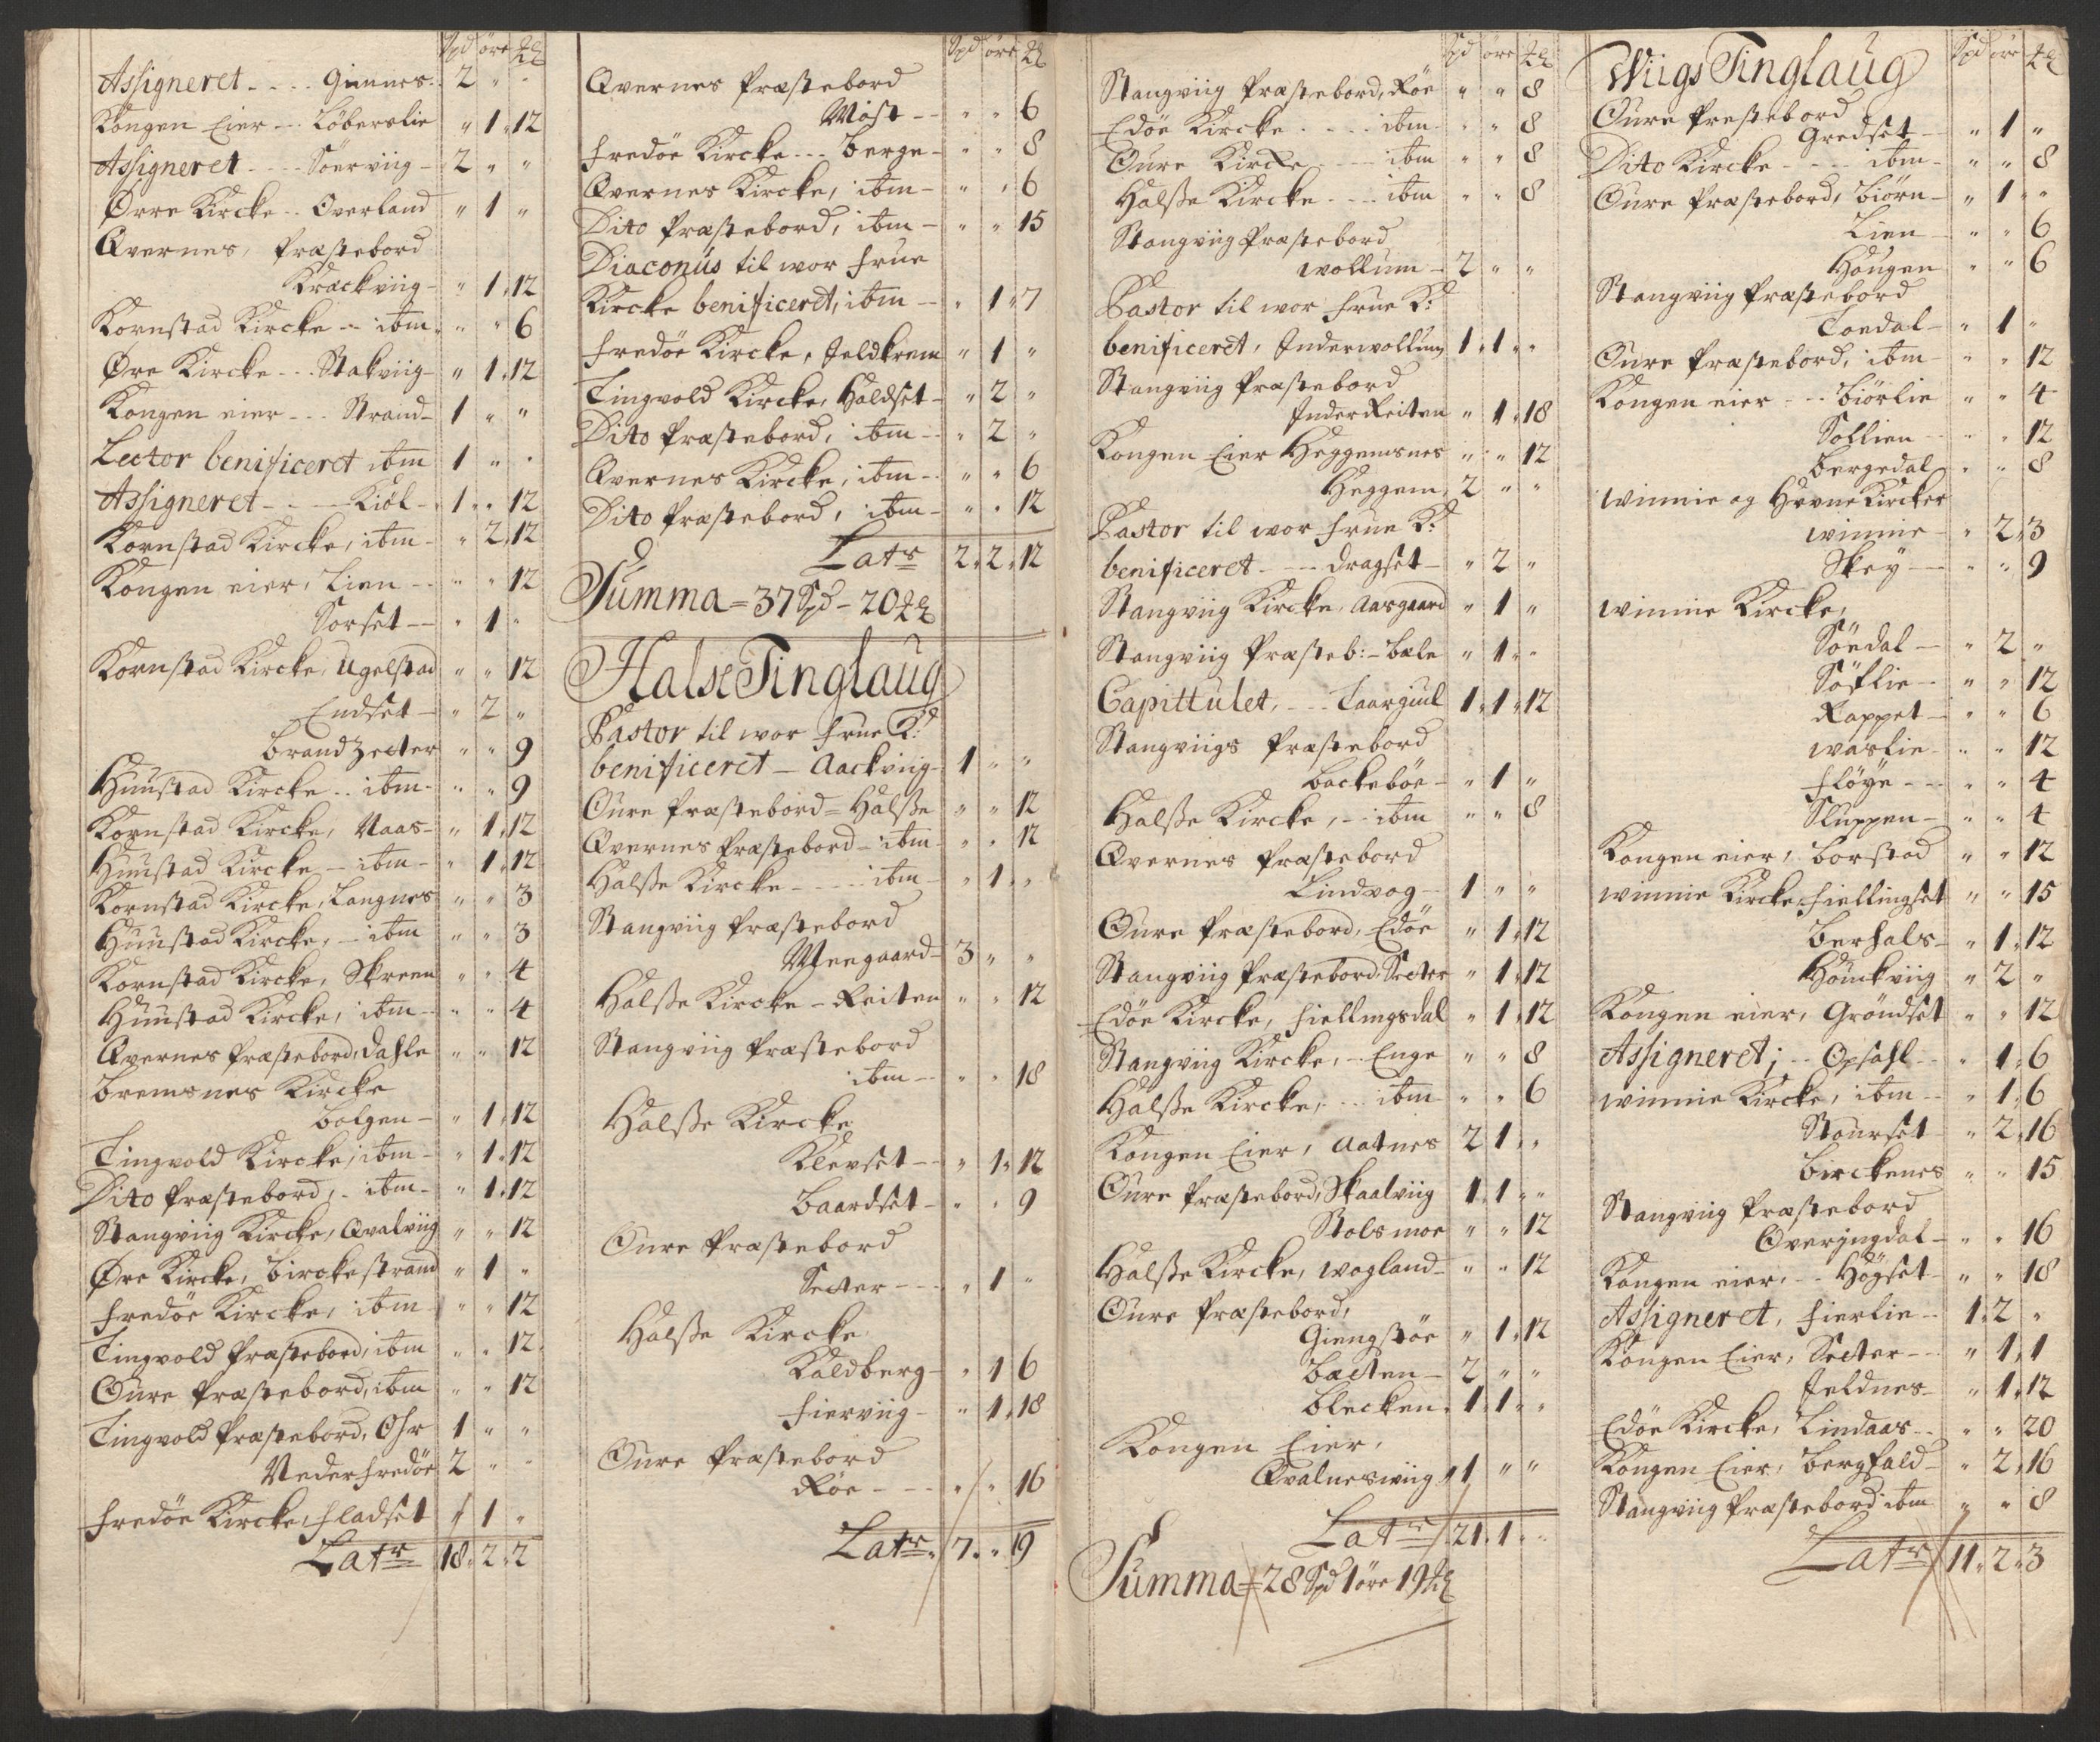 Spd öre ℔
Assigneret - - - - Gimnes - 2 " "
Kongen Eier - - Löberslie " 1 " 12
Assigneret - - - - Söerviig - 2 " "
Örre Kircke - - Overland " 1 "
Qvernes, Præstebord
Kræckviig - " 1 " 12
Kornstad Kircke - - ibm - " " 6
Öre Kircke - - - Stakviig - " 1 " 12
Kongen eier - - - Strand - 1 " "
Lector benificeret ibm 1 " "
Assigneret - - - - Kiöl - 1 " 12
Kornstad Kircke, ibm - " 2 " 12
Kongen eier, Lien - - " " 12
Sorset - - " 1 "
Kornstad Kircke, Ugelstad " " 12
Endset - " 2 "
Brandzecter " " 9
Huustad Kircke - - ibm - " " 9
Kornstad Kircke, Naas - " 1 " 12
Huustad Kircke - ibm - " 1 " 12
Kornstad Kircke, Langnes " " 3
Huustad Kircke, - ibm " " 3
Kornstad Kircke, Skreen " " 4
Huustad Kircke, ibm - " " 4
Qvernes Præstebord, Dahle " " 12
Bremsnes Kircke
Bolgen - " 1 " 12
Tingvold Kircke, ibm - " 1 " 12
Dito Præstebord, - ibm - " 1 " 12
Stangviig Kircke, Qvalviig " " 12
Öre Kircke, Birckestrand " 1 "
Fredöe Kircke, ibm - " " 12
Tingvold Præstebord, ibm " " 12
Oure Præstebord, ibm " " 12
Tingvold Præstebord, Ohr 1 " "
Nederfredöe 2 " "
Fredöe Kircke, Fladset " 1 "
Latr 18 " 2 " 2
Spd öre ℔
Qvernes Præstebord
Mast - - " " 6
Fredöe Kircke - - - Berge - " " 8
Qvernes Kircke, ibm - " " 6
Dito Præstebord, ibm - " " 15
Diaconus til wor Frue
Kircke benificeret, ibm - - " 1 " 7
Fredöe Kircke, Jeldkrem " 1 "
Tingvold Kircke, Haldset - " 2 "
Dito Præstebord, ibm - - " 2 "
Qvernes Kircke, ibm - - " " 6
Dito Præstebord, ibm - " " 12
Latr 2 " 2 " 12
Summa = 37 Spd - 20 ℔
Halse Tinglaug
Pastor til wor Frue K:
benificeret - Aackviig - 1 " "
Oure Præstebord = Halsse " " 12
Qvernes Præstebord - ibm - " " 12
Halsse Kircke - - - - ibm - " 1 " "
Stangviig Præstebord
Meegaard - 3 " "
Halsse Kircke - Reiten " " 12
Stangviig Præstebord
ibm - - " " 18
Halsse Kircke
Klevset - - " 1 " 12
Baardset - " " 9
Oure Præstebord
Secter - - - " 1 "
Halsse Kircke
Kaldberg - " 1 6
Fierviig - " 1 " 18
Oure Præstebord
Röe - - - " " 16
Latr " 7 " " 19
Spd öre ℔
Stangviig Præstebord, Röe " " 8
Edöe Kircke - - - - ibm - " " 8
Oure Kircke - - - ibm " " 8
Halsse Kircke - - - ibm " " 8
Stangviig Præstebord
Wollum - 2 " "
Pastor til wor Frue K:
benificeret, Inderwollum 1 " 1 " "
Stangviig Præstebord
InderReiten " 1 " 18
Kongen Eier Heggemsnes " " 12
Heggem, 2 " "
Pastor til wor Frue K:
benificeret - - - Dragset - " 2 "
Stangviig Kircke, Aargaard " 1 "
Stangviig Præsteb: - Bæle " 1 " "
Capittulet, - - - Taarguul 1 " 1 " 12
Stangviigs Præstebord
Backeböe - " 1 "
Halsse Kircke, - ibm " " 8
Qvernes Præstebord
Lindvog - 1 " "
Oure Præstebord, Edöe " 1 " 12
Stangviig Præstebord, Secter " 1 " 12
Edöe Kircke, Fiellingsdal " 1 " 12
Stangviig Kircke, - Enge " " 8
Halsse Kircke, - - ibm - " " 6
Kongen Eier, Aatnes 2 1 " "
Oure Præstebord, Skaalviig 1 " 1 " "
Stolsmoe " " 12
Halsse Kircke, Wogland - " " 12
Oure Præstebord,
Giengstöe " 1 " 12
Bæcten - 2 " "
Blecken, 1 " 1 " "
Kongen Eier,
Qvalneswiig " 1 " "
Latr 21 " 1 "
Summa = 28 Spd 1 öre 19 ℔
Spd öre ℔
Wiigs Tinglaug
Oure Prestebord
Gredset - " 1 "
Dito Kircke - - - - ibm - " " 8
Oure Præstebord, Biörn - " 1 " "
Lien - " " 6
Hougen " " 6
Stangviig Præstebord
Toedal - " 1 "
Oure Præstebord, ibm - " " 12
Kongen eier - - Biörlie " " 4
Sollien - - " " 12
Bergedal " " 8
Winnie og Hevne Kircker
Winnie - " 2 " 3
Skey - - " " 9
Winnie Kircke,
Söedal - " 2 "
Söflie - - " " 12
Rappet - " " 6
Waslie - " " 12
Flöye - - - " " 4
Sluppen - " " 4
Kongen eier, Borstad " " 12
Winnie Kircke, Fiellingset " " 15
Berhals - " 1 " 12
Houckviig " 2 "
Kongen eier, Gröndset " " 12
Assigneret, - - Opsahl - - " 1 " 6
Winnie Kircke, ibm - - " 1 " 6
Staurset " 2 " 16
Birckenes " " 15
Stangviig Præstebord
Overjngdal - " " 16
Kongen eier, - - Högset - " " 18
Assigneret, Fierlie - - 1 " 2 "
Kongen Eier, Secter - - " 1 " 1
Jeldnes - " 1 " 12
Edöe Kircke, Lindaas - - " " 20
Kongen Eier, Bergfald - " 2 " 16
Stangviig Præstebord ibm " " 8
Latr 11 " 2 " 3